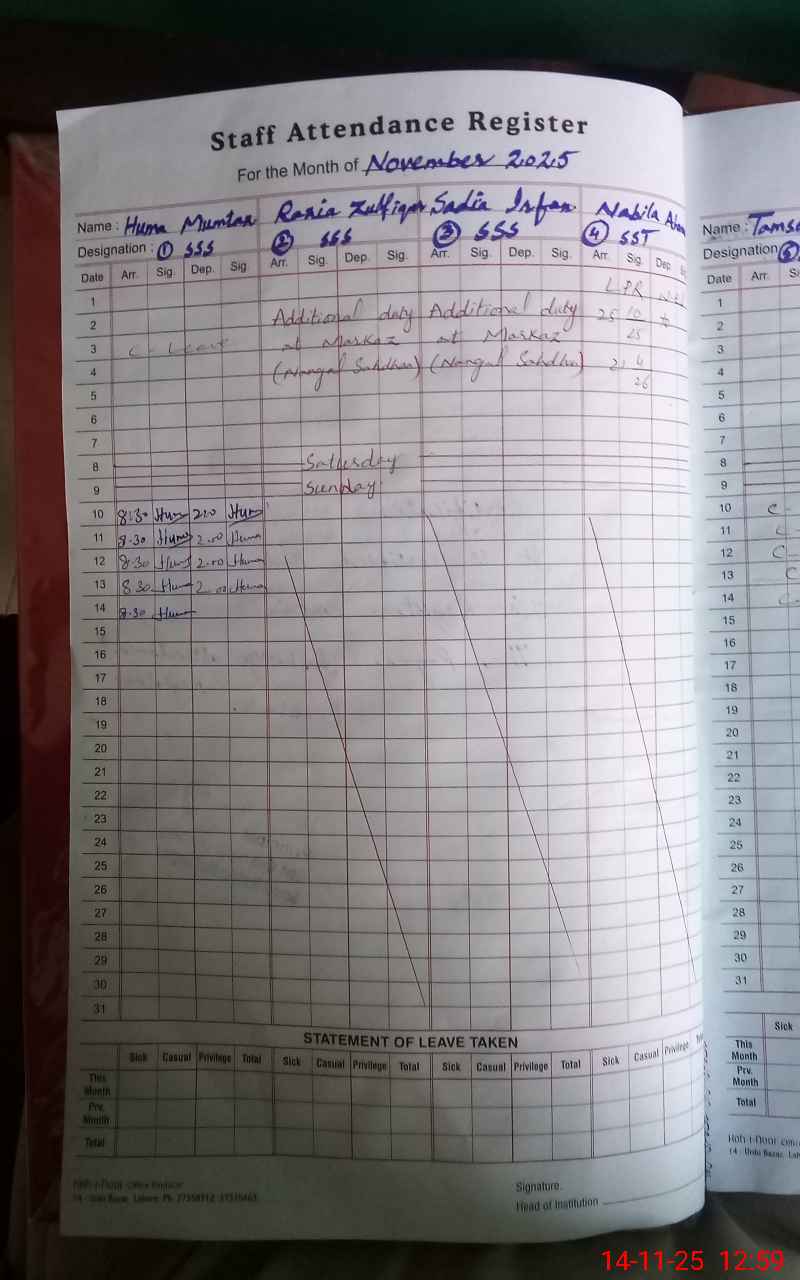 Staff Attendance Register
For the Month of November 2025
Name : Huma Mumtaz Rania Zulfiqar Sadia Irfan Nabila
Designation : ① SSS ② SSS ③ SSS ④ SST
Date Arr. Sig. Dep. Sig. Arr. Sig. Dep. Sig. Arr. Sig. Dep. Sig. Arr. Sig. Dep
1 LPR
2 Additional duty Additional duty 25 10
25
3 C - Leave at Markaz at Markaz
4 (Nangal Sahdhan) (Nangal Sahdhan) 4
26
5
6
7
8 Saturday
9 Sunday
10 8:30 Huma 2:00 Huma
11 8.30 Huma 2.00 Huma
12 8.30 Huma 2.00 Huma
13 8.30 Huma 2.00 Huma
14 8.30 Huma
15
16
17
18
19
20
21
22
23
24
25
26
27
28
29
30
31
STATEMENT OF LEAVE TAKEN
Sick Casual Privilege Total Sick Casual Privilege Total Sick Casual Privilege Total Sick Casual Privilege
This Month
Prv. Month
Total
14 - Urdu Bazar, Lahore. Ph:
Signature.
Head of Institution
Name :
Designation
Date Arr. S
1
2
3
4
5
6
7
8
9
10 C -
11 C -
12 C -
13 C
14 C -
15
16
17
18
19
20
21
22
23
24
25
26
27
28
29
30
31
Sick
This Month
Prv. Month
Total
14 - Urdu Bazar,
14-11-25 12:59